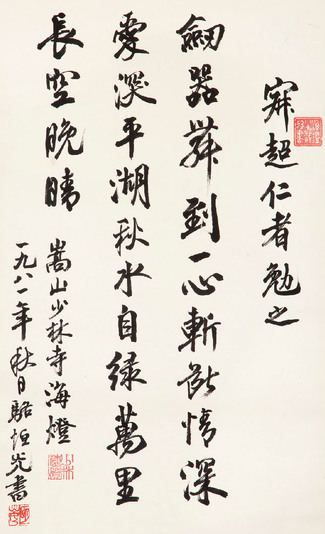 寂超仁者勉之
劒器舞到一心斬斷情深
愛深平湖秋水自绿萬里
長空晚晴
嵩山少林寺海燈
一九八一年秋日駱恒光書